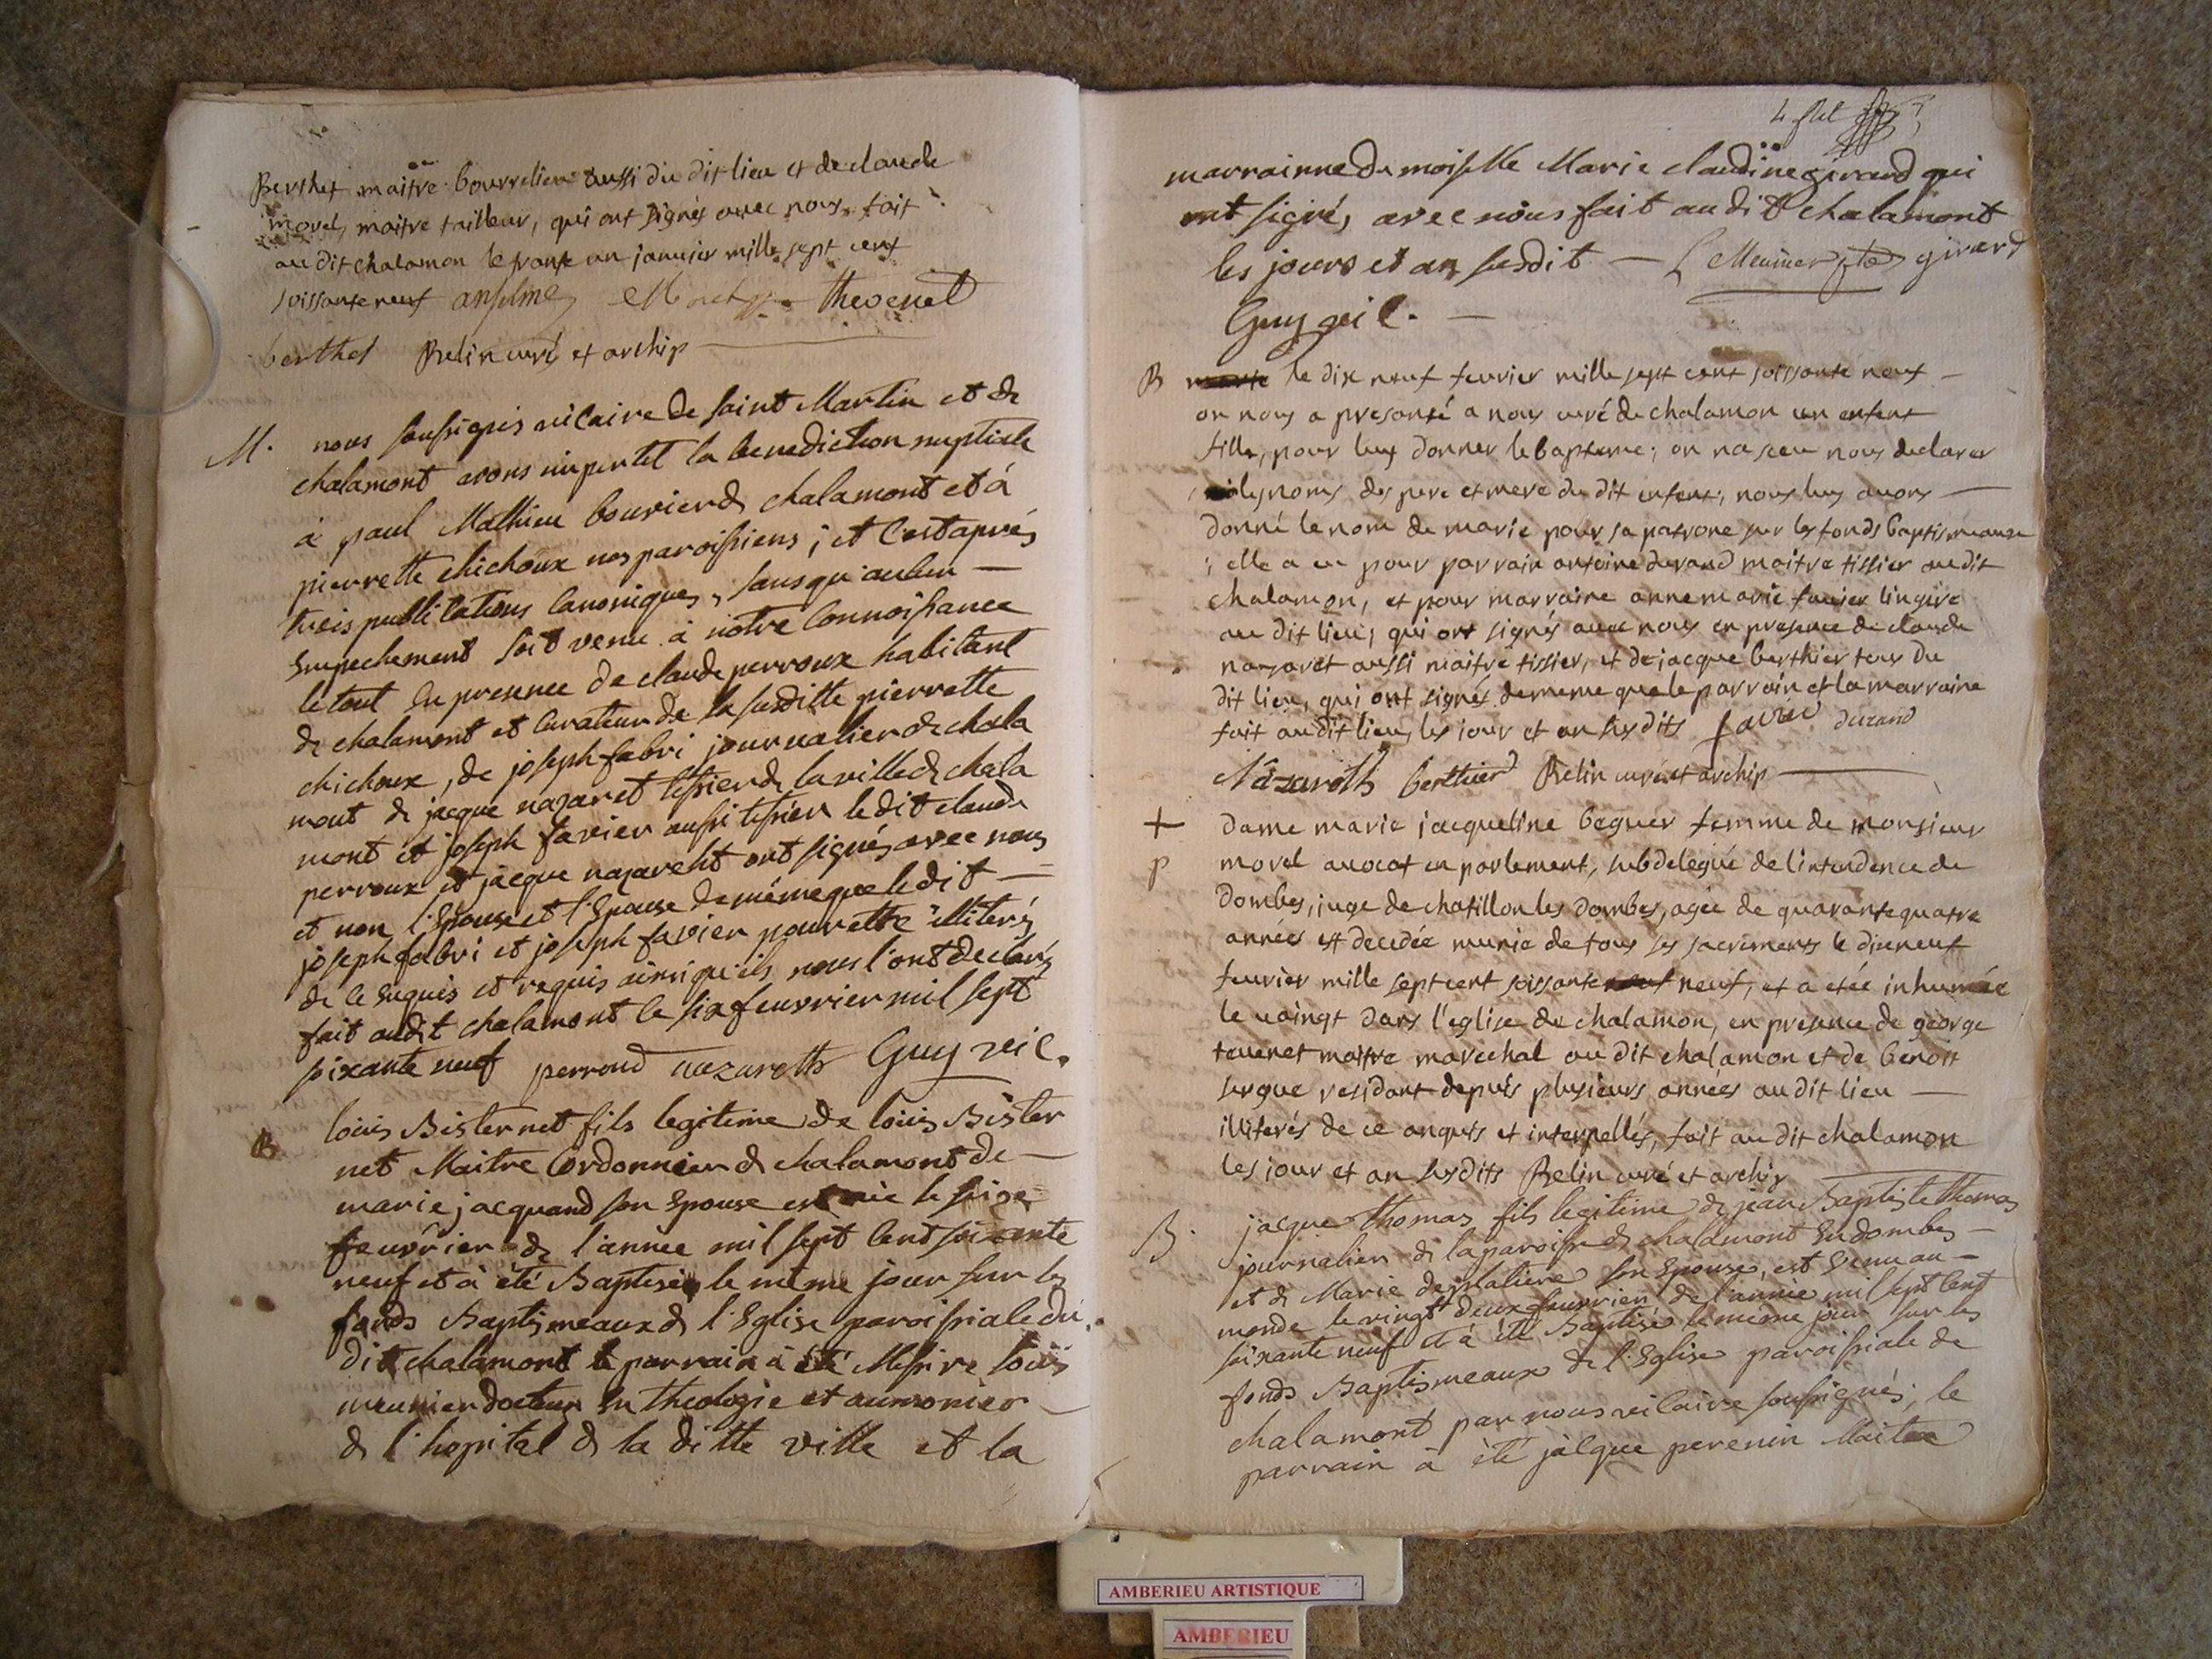 Berthet maitre bourrelier aussi du dit lieu et de claude
morel, maitre tailleur, qui ont signés avec nous. fait
au dit chalamon le trante un janvier mille sept cent
soissante neuf anselme Morel thevenet
berthet Belin curé et archip
M. nous soussignés vicaire de saint Martin et de
chalamont avons imperti la benediction nuptiale
à paul Mathieu bouvier de chalamont et à
pierrette chichoux nos paroissiens ; et c'est aprés
trois publications canoniques, sans qu'aucun —
empechement soit venu à notre connoissance
le tout en presence de claude perroux habitant
de chalamont et curateur de la susditte pierrette
chichoux, de joseph fabri journalier de chala
mont de jacque nazaret tissier de la ville de chala
mont et joseph favier aussi tissier le dit claude
perroux et jacque nazareht ont signés avec nous
et non l'Epoux et l'Epouse de même que le dit —
joseph fabri et joseph favier pour etre illiterés
de ce enquis et requis ainsi qu'ils nous l'ont declarés
fait audit chalamont le six feuvrier mil sept
soixante neuf perroud nazareth Guy vic.
B. loüis Bisternet fils legitime de loüis Bister
net Maitre Cordonnier de chalamont de —
marie jacquand son Epouse est née le seize
feuvrier de l'année mil sept cent soixante
neuf et à été Baptisé le même jour sur les
fonds Baptismeaux de l'Eglise paroissiale du
dit chalamont le parrain à été Messire loüis
meunier docteur en theologie et aumonier —
de l'hopital de la ditte ville et la
4 flet
marrainne demoiselle Marie claudine girard qui
ont signés avec nous fait au dit chalamont
les jours et an susdit — L Meunier ptre girard
Guy vic. —
B le dix neuf fevrier mille sept cent soissante neuf —
on nous a presanté a nous curé de chalamon un enfent
fille, pour luy donner le bapteme ; on na sceu nous declarer
les noms des pere et mere du dit enfent, nous luy avons —
donné le nom de marie pour sa patrone sur les fonds baptismeaux
; elle a eu pour parrain antoine durand maitre tissier au dit
chalamon, et pour marraine anne marie favier lingere
au dit lieu, qui ont signés avec nous en presence de claude
nazaret aussi maitre tissier, et de jacque berthier tous du
dit lieu, qui ont signés de meme que le parrain et la marraine
fait au dit lieu, les jour et an susdits favier durand
Nâzareth berthier Belin curé et archip —
+ Dame marie jacqueline beguer femme de monsieur
p morel avocat en parlement, subdelegué de l'intendence de
Dombes, juge de chatillon les Dombes, agée de quarante quatre
années est decedée munie de tous ses sacrements le dix neuf
fevrier mille sept cent soissante neuf, et a etée inhumée
le vaingt dans l'eglise de chalamon, en presence de george
tevenet maitre marechal au dit chalamon et de benoit
surgue residant depuis plusieurs années au dit lieu —
illiterés de ce anquis et interpellés, fait au dit chalamon
les jour et an susdits Belin curé et archip
B. jacque thomas fils legitime de jean Baptiste thomas
journalier de la paroisse de chalamont En dombes —
et de Marie desplatiere son Epouse, est venu au —
monde le vingt deux feuvrier de l'année mil sept cent
soixante neuf et à été Baptisé le même jour sur les
fonds Baptismeaux de l'Eglise paroissiale de
chalamont par nous vicaire soussignés ; le
parrain à été jàcque perenin Maitre
AMBERIEU ARTISTIQUE
AMBERIEU